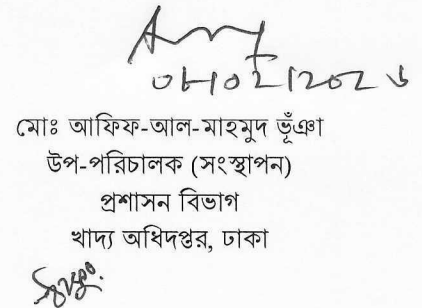 ০৮/০২/২০২৬
মোঃ আফিফ-আল-মাহমুদ ভূঁঞা
উপ-পরিচালক (সংস্থাপন)
প্রশাসন বিভাগ
খাদ্য অধিদপ্তর, ঢাকা